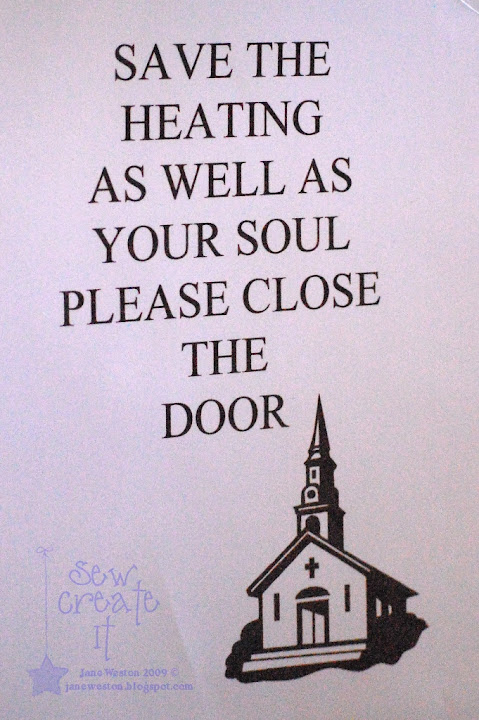 SAVE THE
HEATING
AS WELL AS
YOUR SOUL
PLEASE CLOSE
THE
DOOR
sew
create
it
Jane Weston 2009 ©
janeweston.blogspot.com